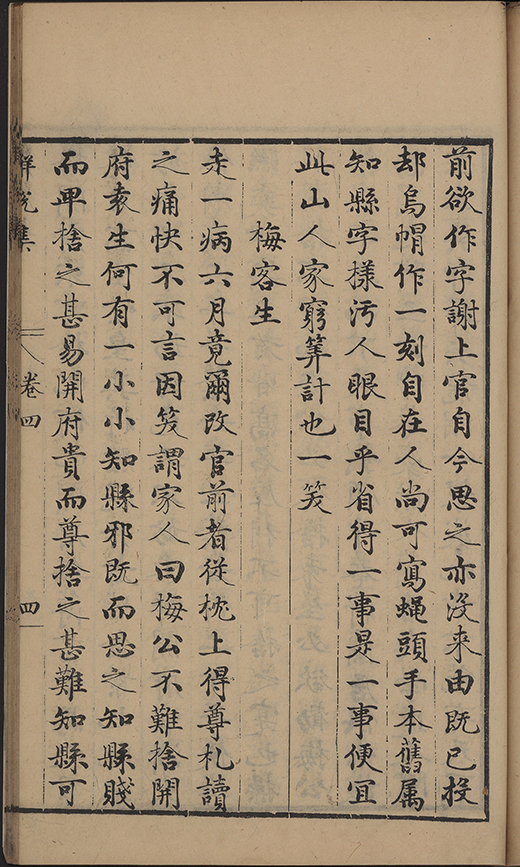 前欲作字謝上官自今思之亦沒来由既已投
却烏帽作一刻自在人尚可寫蝇頭手本舊属
知縣字様汚人眼目乎省得一事是一事便宜
此山人家窮筭計也一笑
梅客生
走一病六月竟爾改官前者従枕上得尊札讀
之痛快不可言因笑謂家人曰梅公不難捨開
府袁生何有一小小知縣邪既而思之知縣賤
而卑捨之甚易開府貴而尊捨之甚難知縣可
解脫集
卷四
四